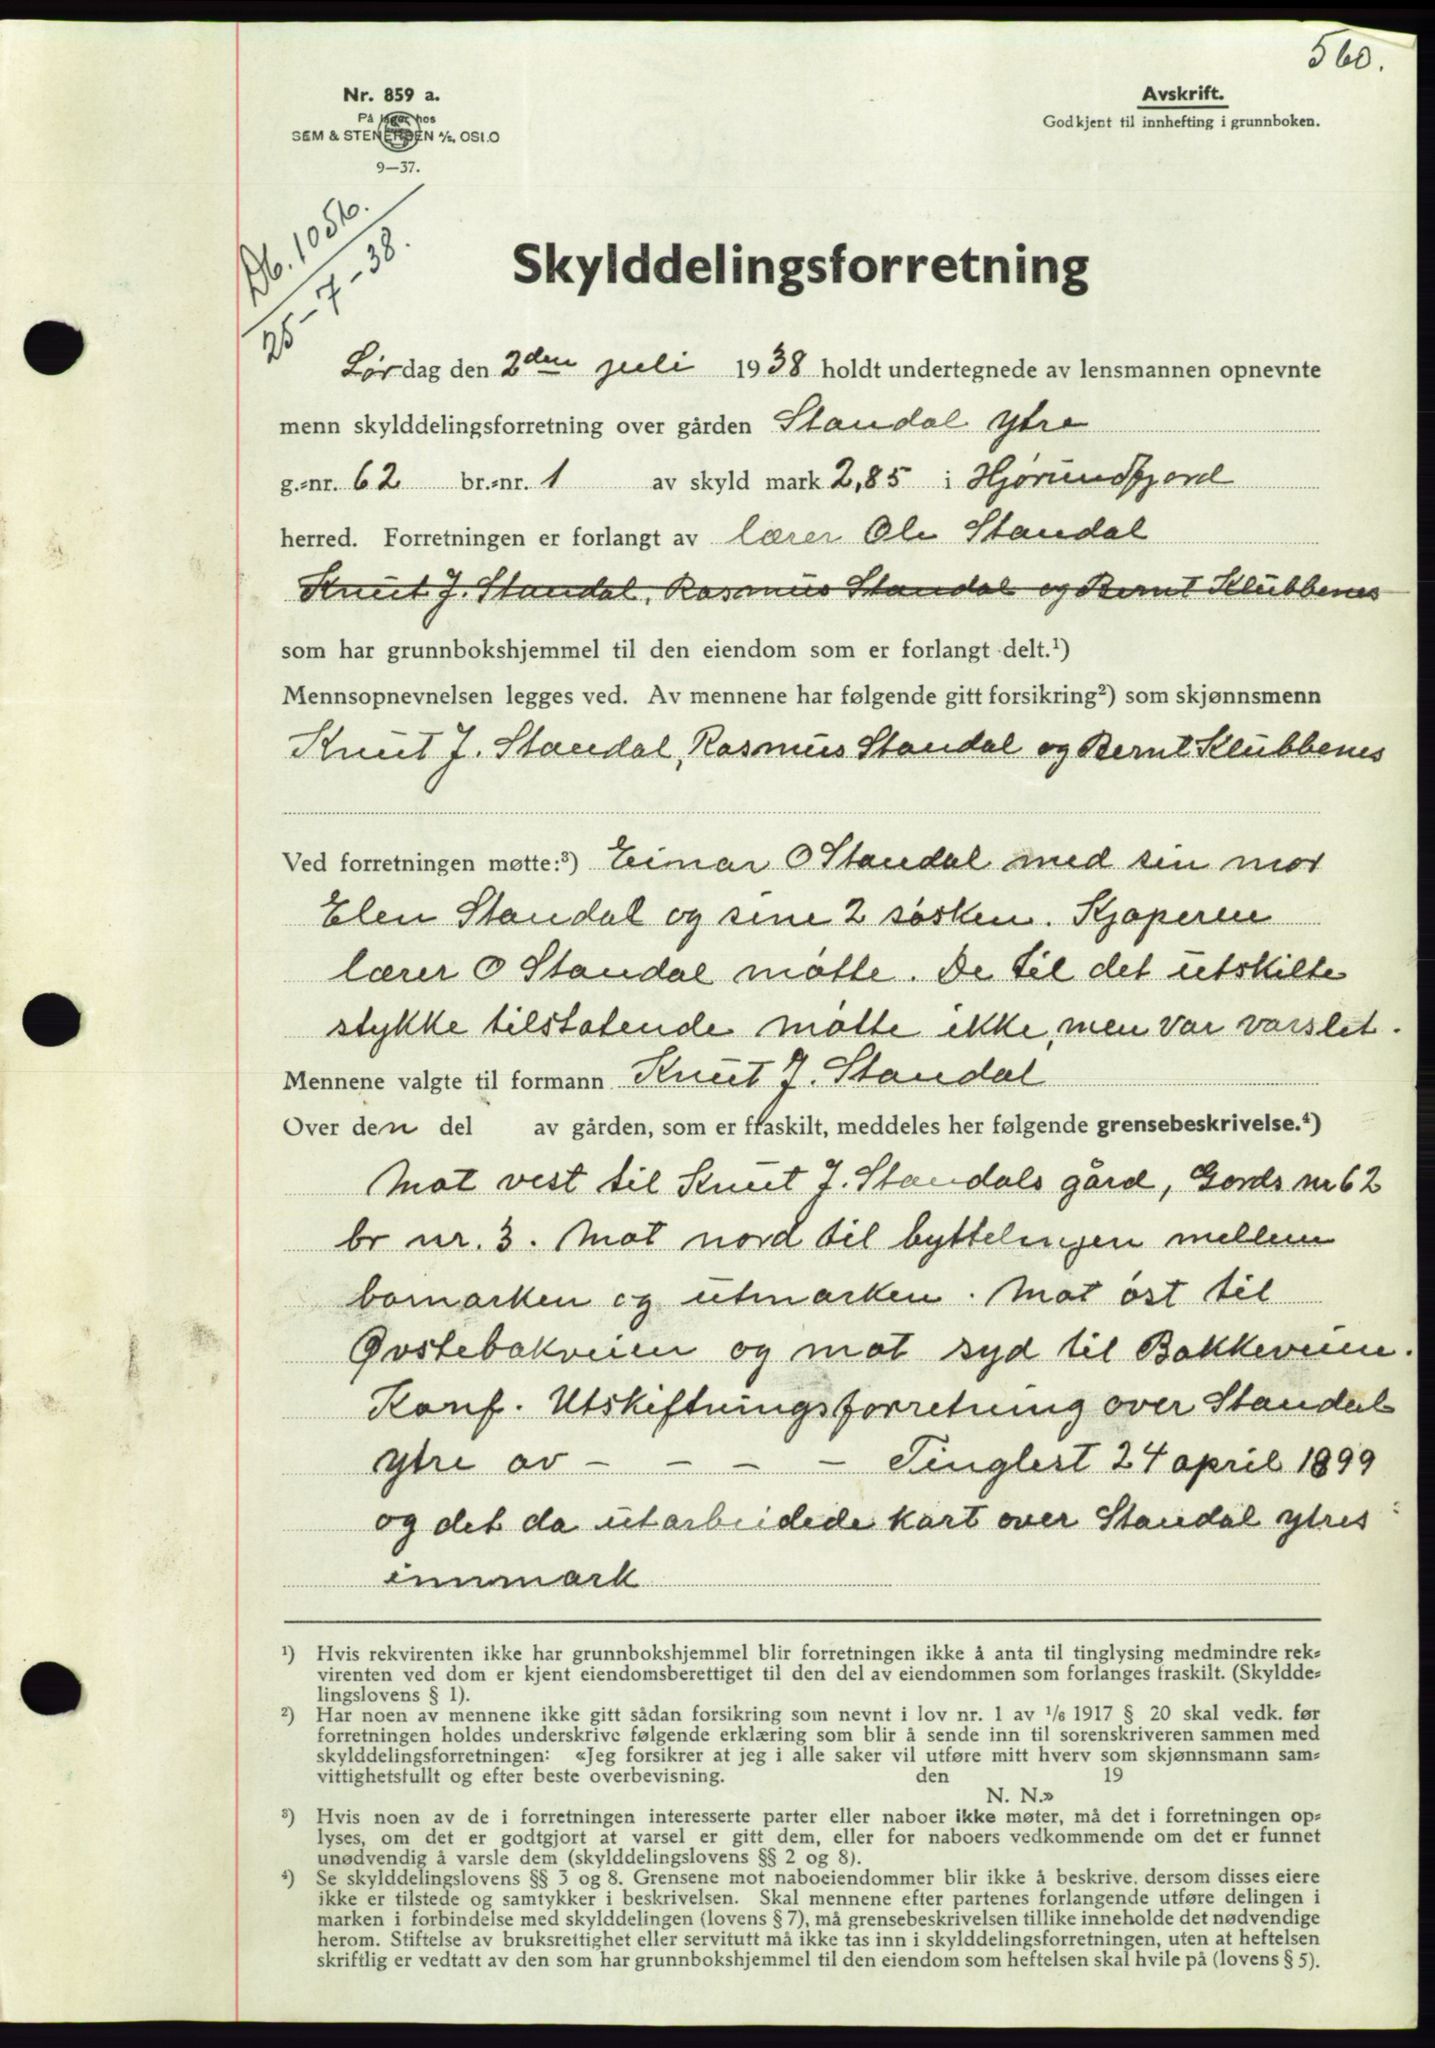 560.
Nr. 859 a.
På lager hos
SEM & STENERSEN A/S, OSLO
9—37.
Avskrift.
Godkjent til innhefting i grunnboken.
Db. 1056.
25-7-38.
Skylddelingsforretning
Lørdag den 2den juli 1938 holdt undertegnede av lensmannen opnevnte
menn skylddelingsforretning over gården Standal ytre
g.=nr. 62 br.=nr. 1 av skyld mark 2,85 i Hjørundfjord
herred. Forretningen er forlangt av lærer Ole Standal
Knut J. Standal, Rasmus Standal og Bernt Klubbenes
som har grunnbokshjemmel til den eiendom som er forlangt delt.¹)
Mennsopnevnelsen legges ved. Av mennene har følgende gitt forsikring²) som skjønnsmenn
Knut J. Standal, Rasmus Standal og Bernt Klubbenes
Ved forretningen møtte:³) Einar O Standal med sin mor
Elen Standal og sine 2 søsken. Kjøperen
lærer O Standal møtte. De til det utskilte
stykke tilstøtende møtte ikke, men var varslet.
Mennene valgte til formann Knut J. Standal
Over den del av gården, som er fraskilt, meddeles her følgende grensebeskrivelse.⁴)
Mot vest til Knut J. Standals gård, Gards nr 62
br nr. 3. Mot nord til byttelinjen mellem
bømarken og utmarken. Mot øst til
Øvstebakveien og mot syd til Bakkeveien.
Konf. Utskiftningsforretning over Standal
ytre av - - - - Tinglest 24 april 1899
og det da utarbeidede kart over Standal ytres
innmark
¹) Hvis rekvirenten ikke har grunnbokshjemmel blir forretningen ikke å anta til tinglysing medmindre rek=
virenten ved dom er kjent eiendomsberettiget til den del av eiendommen som forlanges fraskilt. (Skyldde=
lingslovens § 1).
²) Har noen av mennene ikke gitt sådan forsikring som nevnt i lov nr. 1 av 1/6 1917 § 20 skal vedk. før
forretningen holdes underskrive følgende erklæring som blir å sende inn til sorenskriveren sammen med
skylddelingsforretningen: «Jeg forsikrer at jeg i alle saker vil utføre mitt hverv som skjønnsmann sam=
vittighetsfullt og efter beste overbevisning. den 19
N. N.»
³) Hvis noen av de i forretningen interesserte parter eller naboer ikke møter, må det i forretningen op=
lyses, om det er godtgjort at varsel er gitt dem, eller for naboers vedkommende om det er funnet
unødvendig å varsle dem (skylddelingslovens §§ 2 og 8).
⁴) Se skylddelingslovens §§ 3 og 8. Grensene mot naboeiendommer blir ikke å beskrive, dersom disses eiere
ikke er tilstede og samtykker i beskrivelsen. Skal mennene efter partenes forlangende utføre delingen i
marken i forbindelse med skylddelingen (lovens § 7), må grensebeskrivelsen tillike inneholde det nødvendige
herom. Stiftelse av bruksrettighet eller servitutt må ikke tas inn i skylddelingsforretningen, uten at heftelsen
skriftlig er vedtatt av den som har grunnbokshjemmel til den eiendom som heftelsen skal hvile på (lovens § 5).